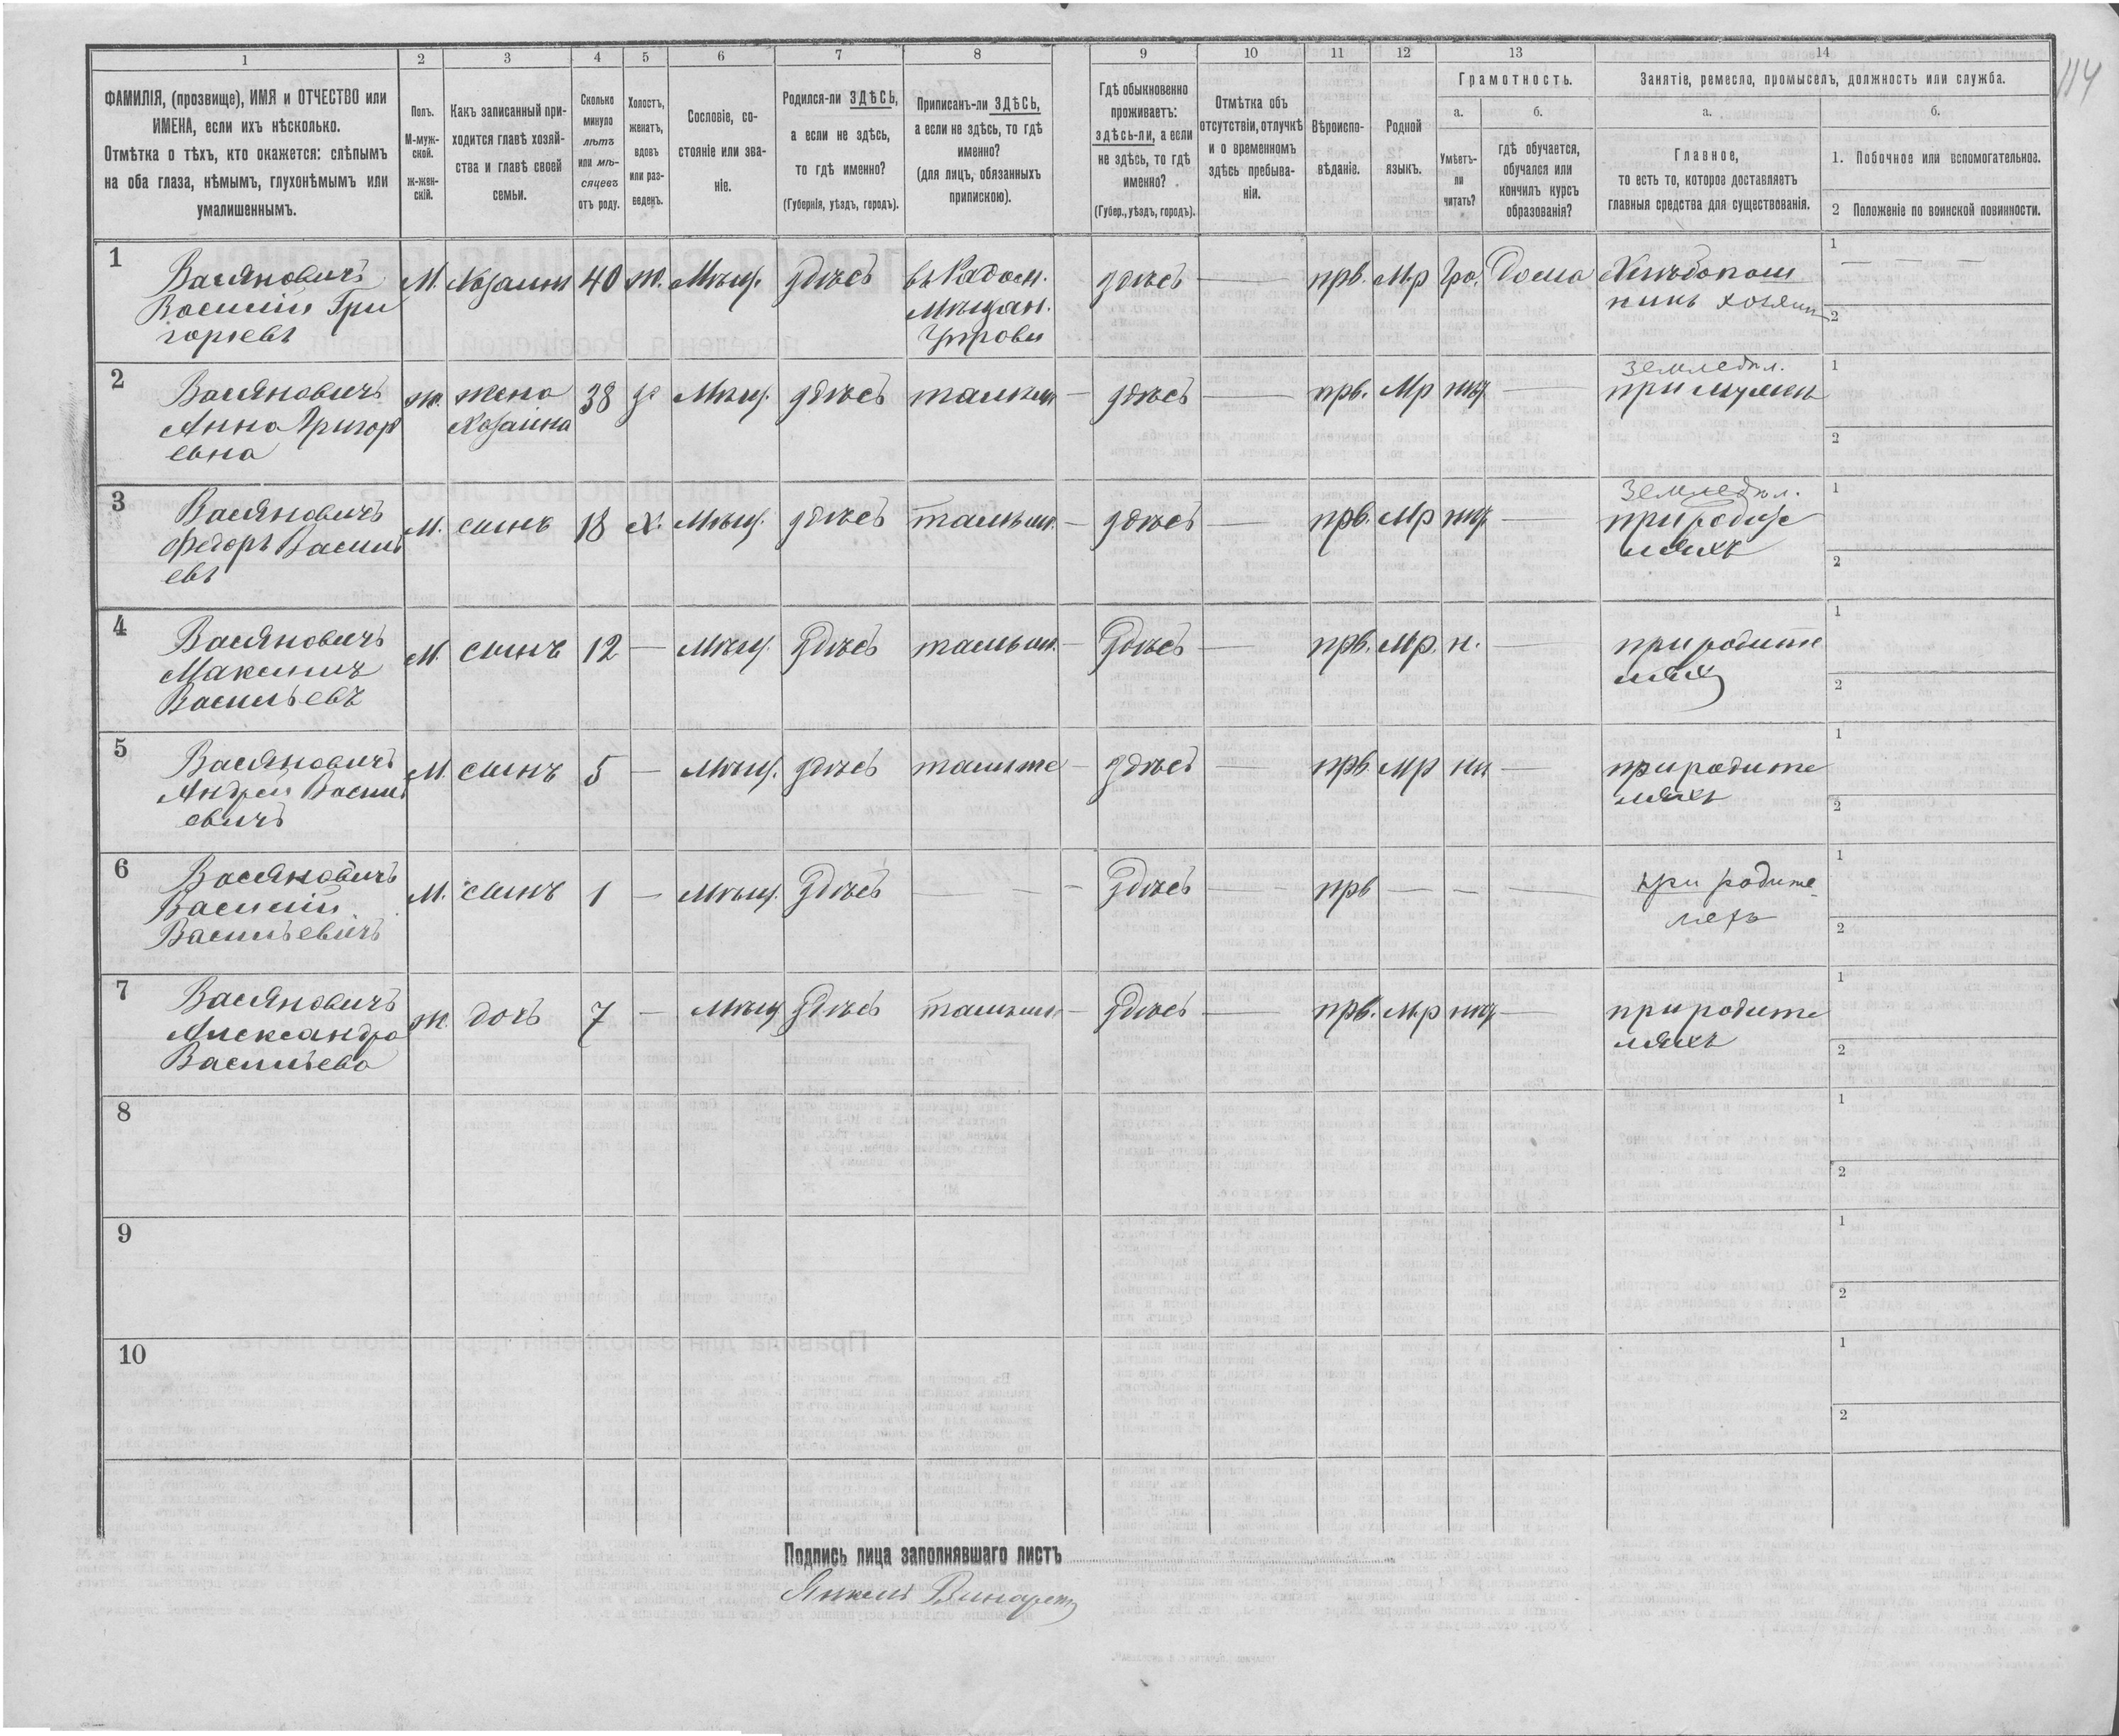 114
1 2 3 4 5 6 7 8 9 10 11 12 13 14
ФАМИЛІЯ, (прозвище), ИМЯ и ОТЧЕСТВО или
ИМЕНА, если ихъ нѣсколько.
Отмѣтка о тѣхъ, кто окажется: слѣпымъ
на оба глаза, нѣмымъ, глухонѣмымъ или
умалишеннымъ.
Полъ.
М-муж-
ской.
Ж-жен-
скій.
Какъ записанный при-
ходится главѣ хозяй-
ства и главѣ своей
семьи.
Сколько
минуло
лѣтъ
или мѣ-
сяцевъ
отъ роду.
Холостъ,
женатъ,
вдовъ
или раз-
веденъ.
Сословіе, со-
стояніе или зва-
ніе.
Родился-ли ЗДѢСЬ,
а если не здѣсь,
то гдѣ именно?
(Губернія, уѣздъ, городъ).
Приписанъ-ли ЗДѢСЬ,
а если не здѣсь, то гдѣ
именно?
(для лицъ, обязанныхъ
припискою).
Гдѣ обыкновенно
проживаетъ:
здѣсь-ли, а если
не здѣсь, то гдѣ
именно?
(Губер., уѣздъ, городъ).
Отмѣтка объ
отсутствіи, отлучкѣ
и о временномъ
здѣсь пребыва-
ніи.
Вѣроиспо-
вѣданіе.
Родной
языкъ.
Грамотность.
а.
Умѣетъ-
ли
читать?
б.
гдѣ обучается,
обучался или
кончилъ курсъ
образованія?
Занятіе, ремесло, промыселъ, должность или служба.
а.
Главное,
то есть то, которое доставляетъ
главныя средства для существованія.
б.
1. Побочное или вспомогательное.
2 Положеніе по воинской повинности.
1 Васяновичъ М. Хозаинъ 40 ж. Мѣщ. здѣсь въ Радом. здѣсь — прв. М.р Гра. Дома Хлѣбопаш 1 — — —
Василій Гри Мѣщан. пинъ хозяин 2
горіевъ Управы
2 Васяновичъ ж. жена 38 Мѣщ. здѣсь — здѣсь — прв. Мр — земледѣл. 1
Анна Григор Хозаина при мужѣ
евна 2
3 Васяновичъ М. сынъ 18 Х. Мѣщ. здѣсь — здѣсь — прв. Мр — земледѣл. 1
Федоръ Васил при родите
евъ ляхъ 2
4 Васяновичъ М. сынъ 12 — Мѣщ. здѣсь — здѣсь — прв. Мр. н. — при родите 1
Максимъ ляхъ 2
Васильевъ
5 Васяновичъ М. сынъ 5 — Мѣщ. здѣсь тамже — здѣсь — прв. Мр — при родите 1
Андрей Васил ляхъ 2
евичъ
6 Васяновичъ М. сынъ 1 — Мѣщ. здѣсь — — здѣсь — прв — — — при родите 1
Василій лехъ 2
Васильевичъ
7 Васяновичъ ж. дочь 7 — Мѣщ здѣсь — здѣсь — прв. М.р — при родите 1
Александра ляхъ 2
Васильева
8 1
2
9 1
2
10 1
2
Подпись лица заполнявшаго листъ